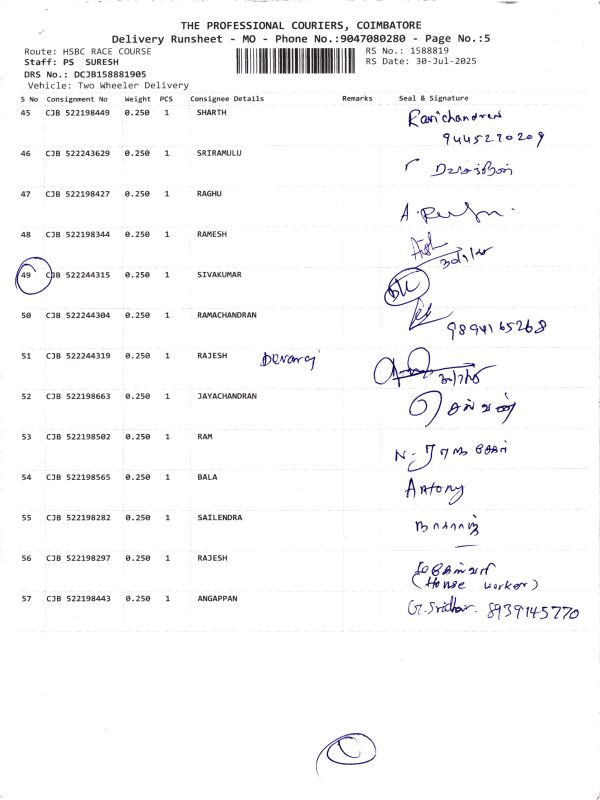 THE PROFESSIONAL COURIERS, COIMBATORE
Delivery Runsheet - MO - Phone No.:9047080280 - Page No.:5
Route: HSBC RACE COURSE RS No.: 1588819
Staff: PS SURESH RS Date: 30-Jul-2025
DRS No.: DCJB158881905
Vehicle: Two Wheeler Delivery
S No Consignment No Weight PCS Consignee Details Remarks Seal & Signature
45 CJB 522198449 0.250 1 SHARTH Ravichandren
9445270209
46 CJB 522243629 0.250 1 SRIRAMULU
47 CJB 522198427 0.250 1 RAGHU
48 CJB 522198344 0.250 1 RAMESH
49 CJB 522244315 0.250 1 SIVAKUMAR
50 CJB 522244304 0.250 1 RAMACHANDRAN 9894165268
51 CJB 522244319 0.250 1 RAJESH Devaraj
52 CJB 522198663 0.250 1 JAYACHANDRAN செல்வன்
53 CJB 522198502 0.250 1 RAM
54 CJB 522198565 0.250 1 BALA Antony
55 CJB 522198282 0.250 1 SAILENDRA நாகராஜ்
56 CJB 522198297 0.250 1 RAJESH
(House worker)
57 CJB 522198443 0.250 1 ANGAPPAN G. Sridhar. 8939145770